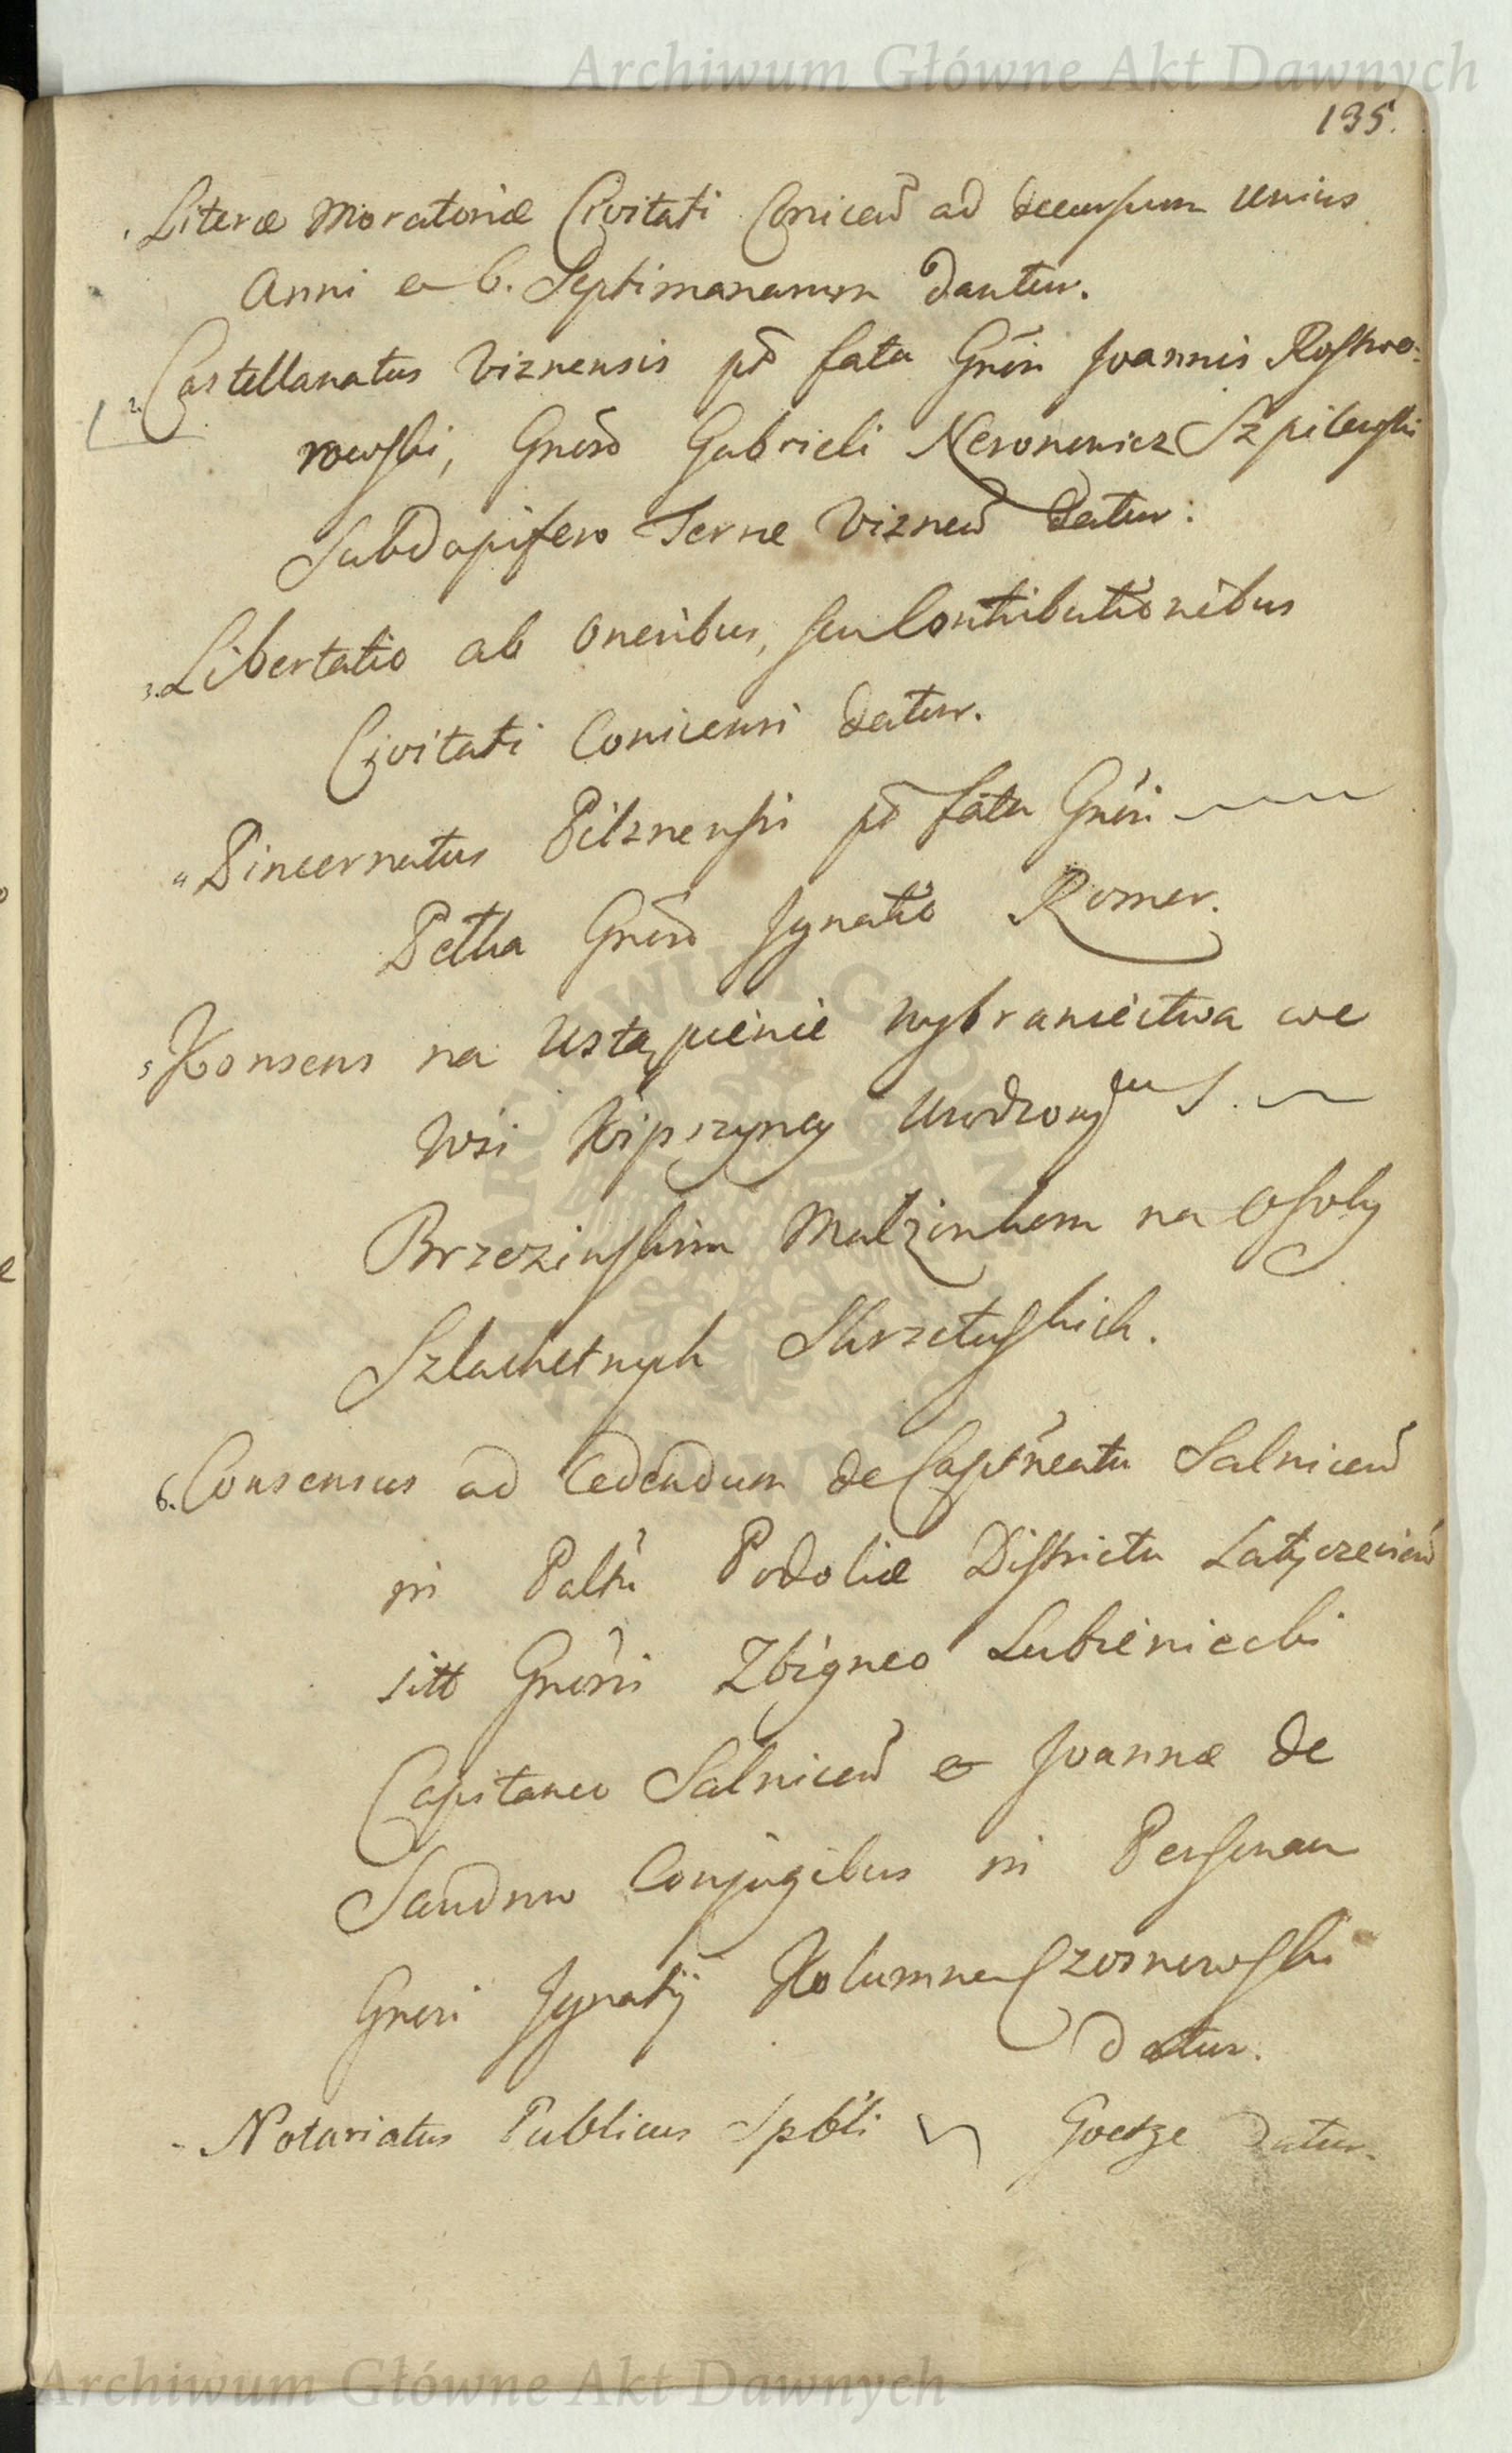 Archiwum Główne Akt Dawnych
195.
Literæ Moratoriæ Civitati Coniceñ ad decursum unius
Anni et 6. Septimanarum dantur.
2. Castellanatus Viznensis pt fata Gnsi Joannis Rostwo-
rowski, Gnoso Gabrieli Neronowicz Szpilewski
Subdapifero Terræ Vizneñ datur.
3. Libertatio ab oneribus, seu Contributionibus
Civitati Conicensi datur.
4 Pincernatus Pilznensis pt fata Gnsi
Gnoso Ignatio Romer.
5 Konsens na ustąpienie wybraniectwa we
wsi Urodzonym S.
Brzezinskim Małżonkom na Osoby
Szlachetnych Skrzetuskich.
6. Consensus ad Cedendum de Captneatu Salniceñ
in Paltu Podoliæ Districtu Latyczevieñ
sitt Gnsi Zbigneo Lubieniecki
Capitaneo Salniceñ et Joannæ de
Conjugibus in Personam
Gnsi Ignatij Kolumna Czosnowski
datur.
Notariatus Publicus Spbli Goetze datur.
Archiwum Główne Akt Dawnych